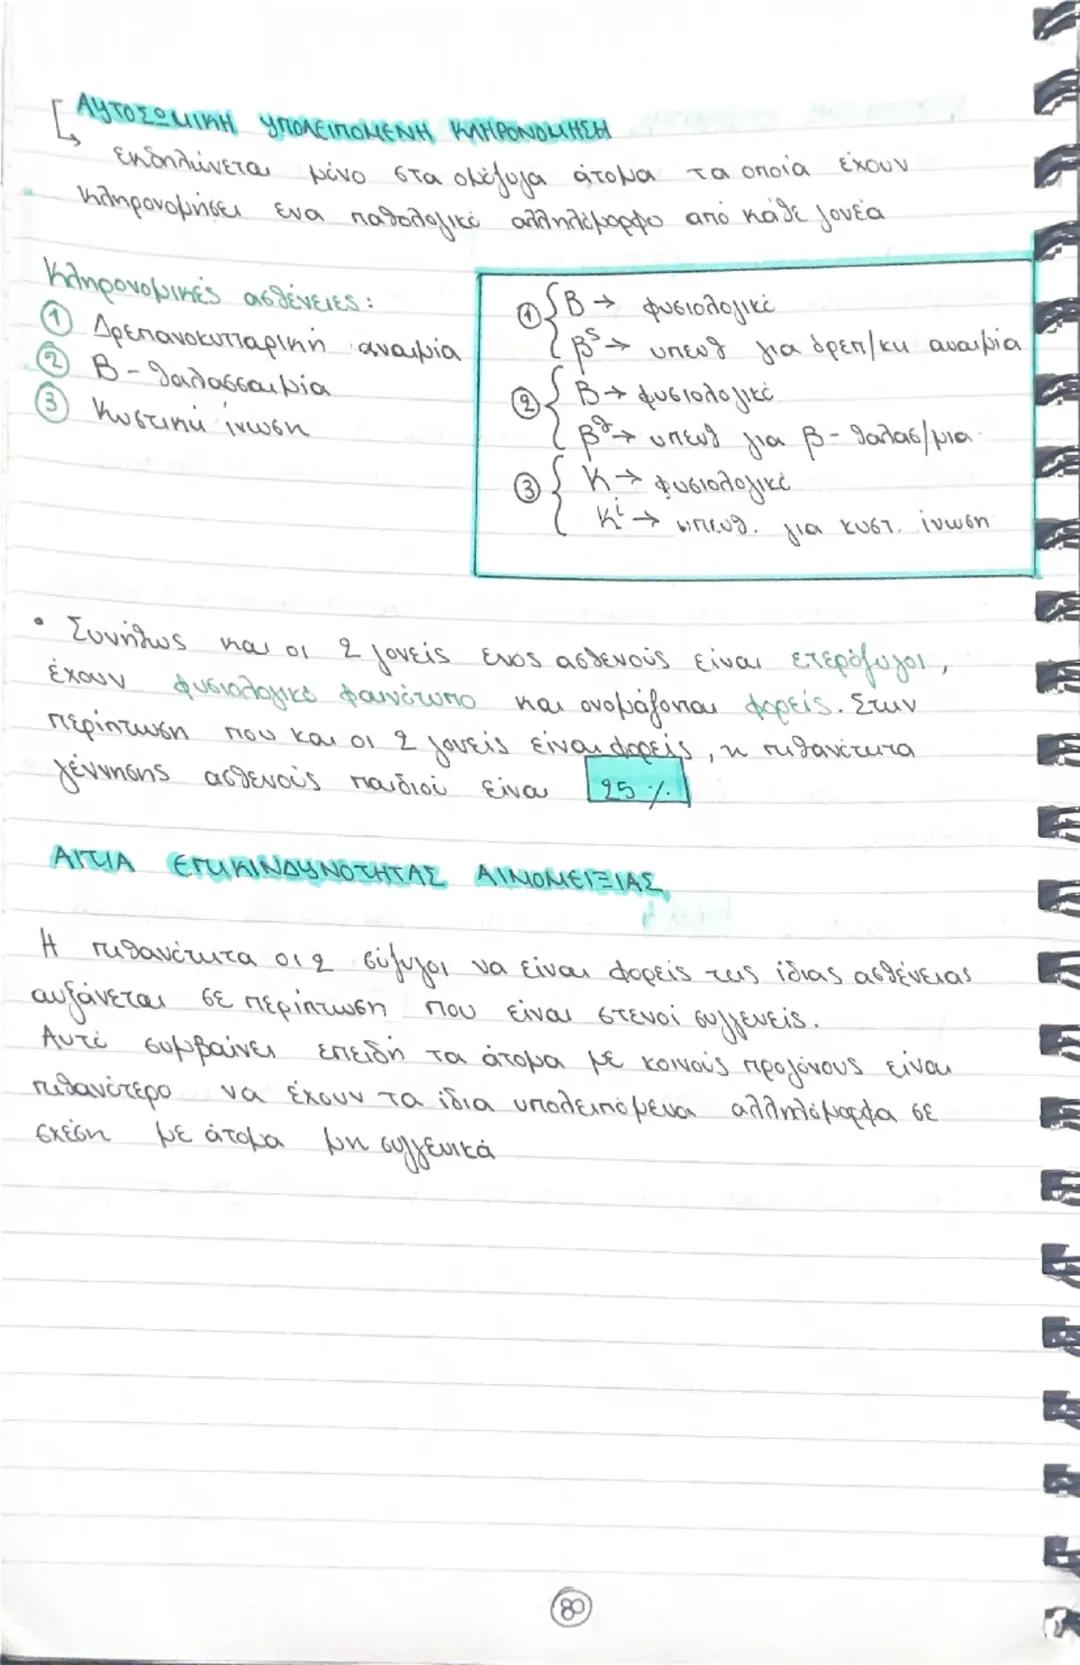 ΑΥΤΟΣΩΜΙΚΗ ΥΠΟΛΕΙΠΟΜΕΝΗ ΚΛΗΡΟΝΟΜΗΣΗ
↳ εκδηλώνεται μόνο στα ομόζυγα άτομα τα οποία έχουν
κληρονομήσει ένα παθολογικό αλληλόμορφο από κάθε γονέα
Κληρονομικές ασθένειες:
① Δρεπανοκυτταρική αναιμία
② Β-θαλασσαιμία
③ Κυστική ίνωση
① { Β → φυσιολογικό
β^s → υπευθ για δρεπ/κη αναιμία
② { Β → φυσιολογικό
β^θ → υπευθ για β-θαλασ/μια
③ { Κ → φυσιολογικό
κ^i → υπευθ. για κυστ. ίνωση
• Συνήθως και οι 2 γονείς ενός ασθενούς είναι ετερόζυγοι,
έχουν φυσιολογικό φαινότυπο και ονομάζονται φορείς. Στην
περίπτωση που και οι 2 γονείς είναι φορείς, η πιθανότητα
γέννησης ασθενούς παιδιού είναι 25 %.
ΑΙΤΙΑ ΕΠΙΚΙΝΔΥΝΟΤΗΤΑΣ ΑΙΜΟΜΕΙΞΙΑΣ
Η πιθανότητα οι 2 σύζυγοι να είναι φορείς της ίδιας ασθένειας
αυξάνεται σε περίπτωση που είναι στενοί συγγενείς.
Αυτό συμβαίνει επειδή τα άτομα με κοινούς προγόνους είναι
πιθανότερο να έχουν τα ίδια υπολειπόμενα αλληλόμορφα σε
σχέση με άτομα μη συγγενικά
80